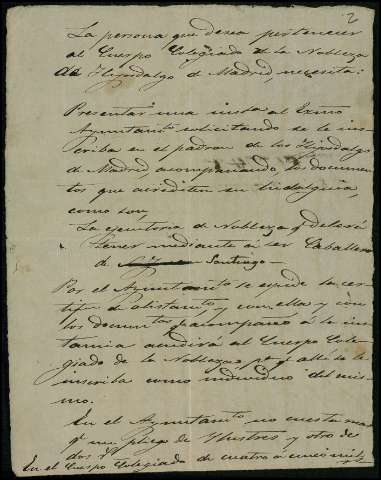 2
La persona que desea pertenecer
al Cuerpo Colegiado de la Nobleza
de Hijosdalgo de Madrid, necesita:
Presentar una insta al Exmo
Ayuntamto solicitando se le ins-
criba en el padron de los Hijosdalgo
de Madrid, acompañando, los documen-
tos que acrediten su hidalguia,
como son,
La ejecutoria de Nobleza q deberá
tener mediante á ser Caballero
de Santiago—
Por el Ayuntamto se expide la cer-
tifn de alistamto, y con ellas y con
los documtos q acompañó á la ins-
tancia acudirá al Cuerpo Cole-
giado de la Nobleza pa q allí se le
inscriba como individuo del mis-
mo.
En el Ayuntamto no cuesta mas
q un pliego de Ilustres y otro de
dos
En el Cuerpo Colegiado de cuatro á cinco mil